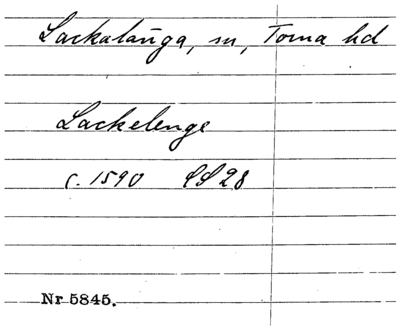 Lackalänga, sn, Torna hd
Lackelenge
c. 1590 28
Nr 5845.